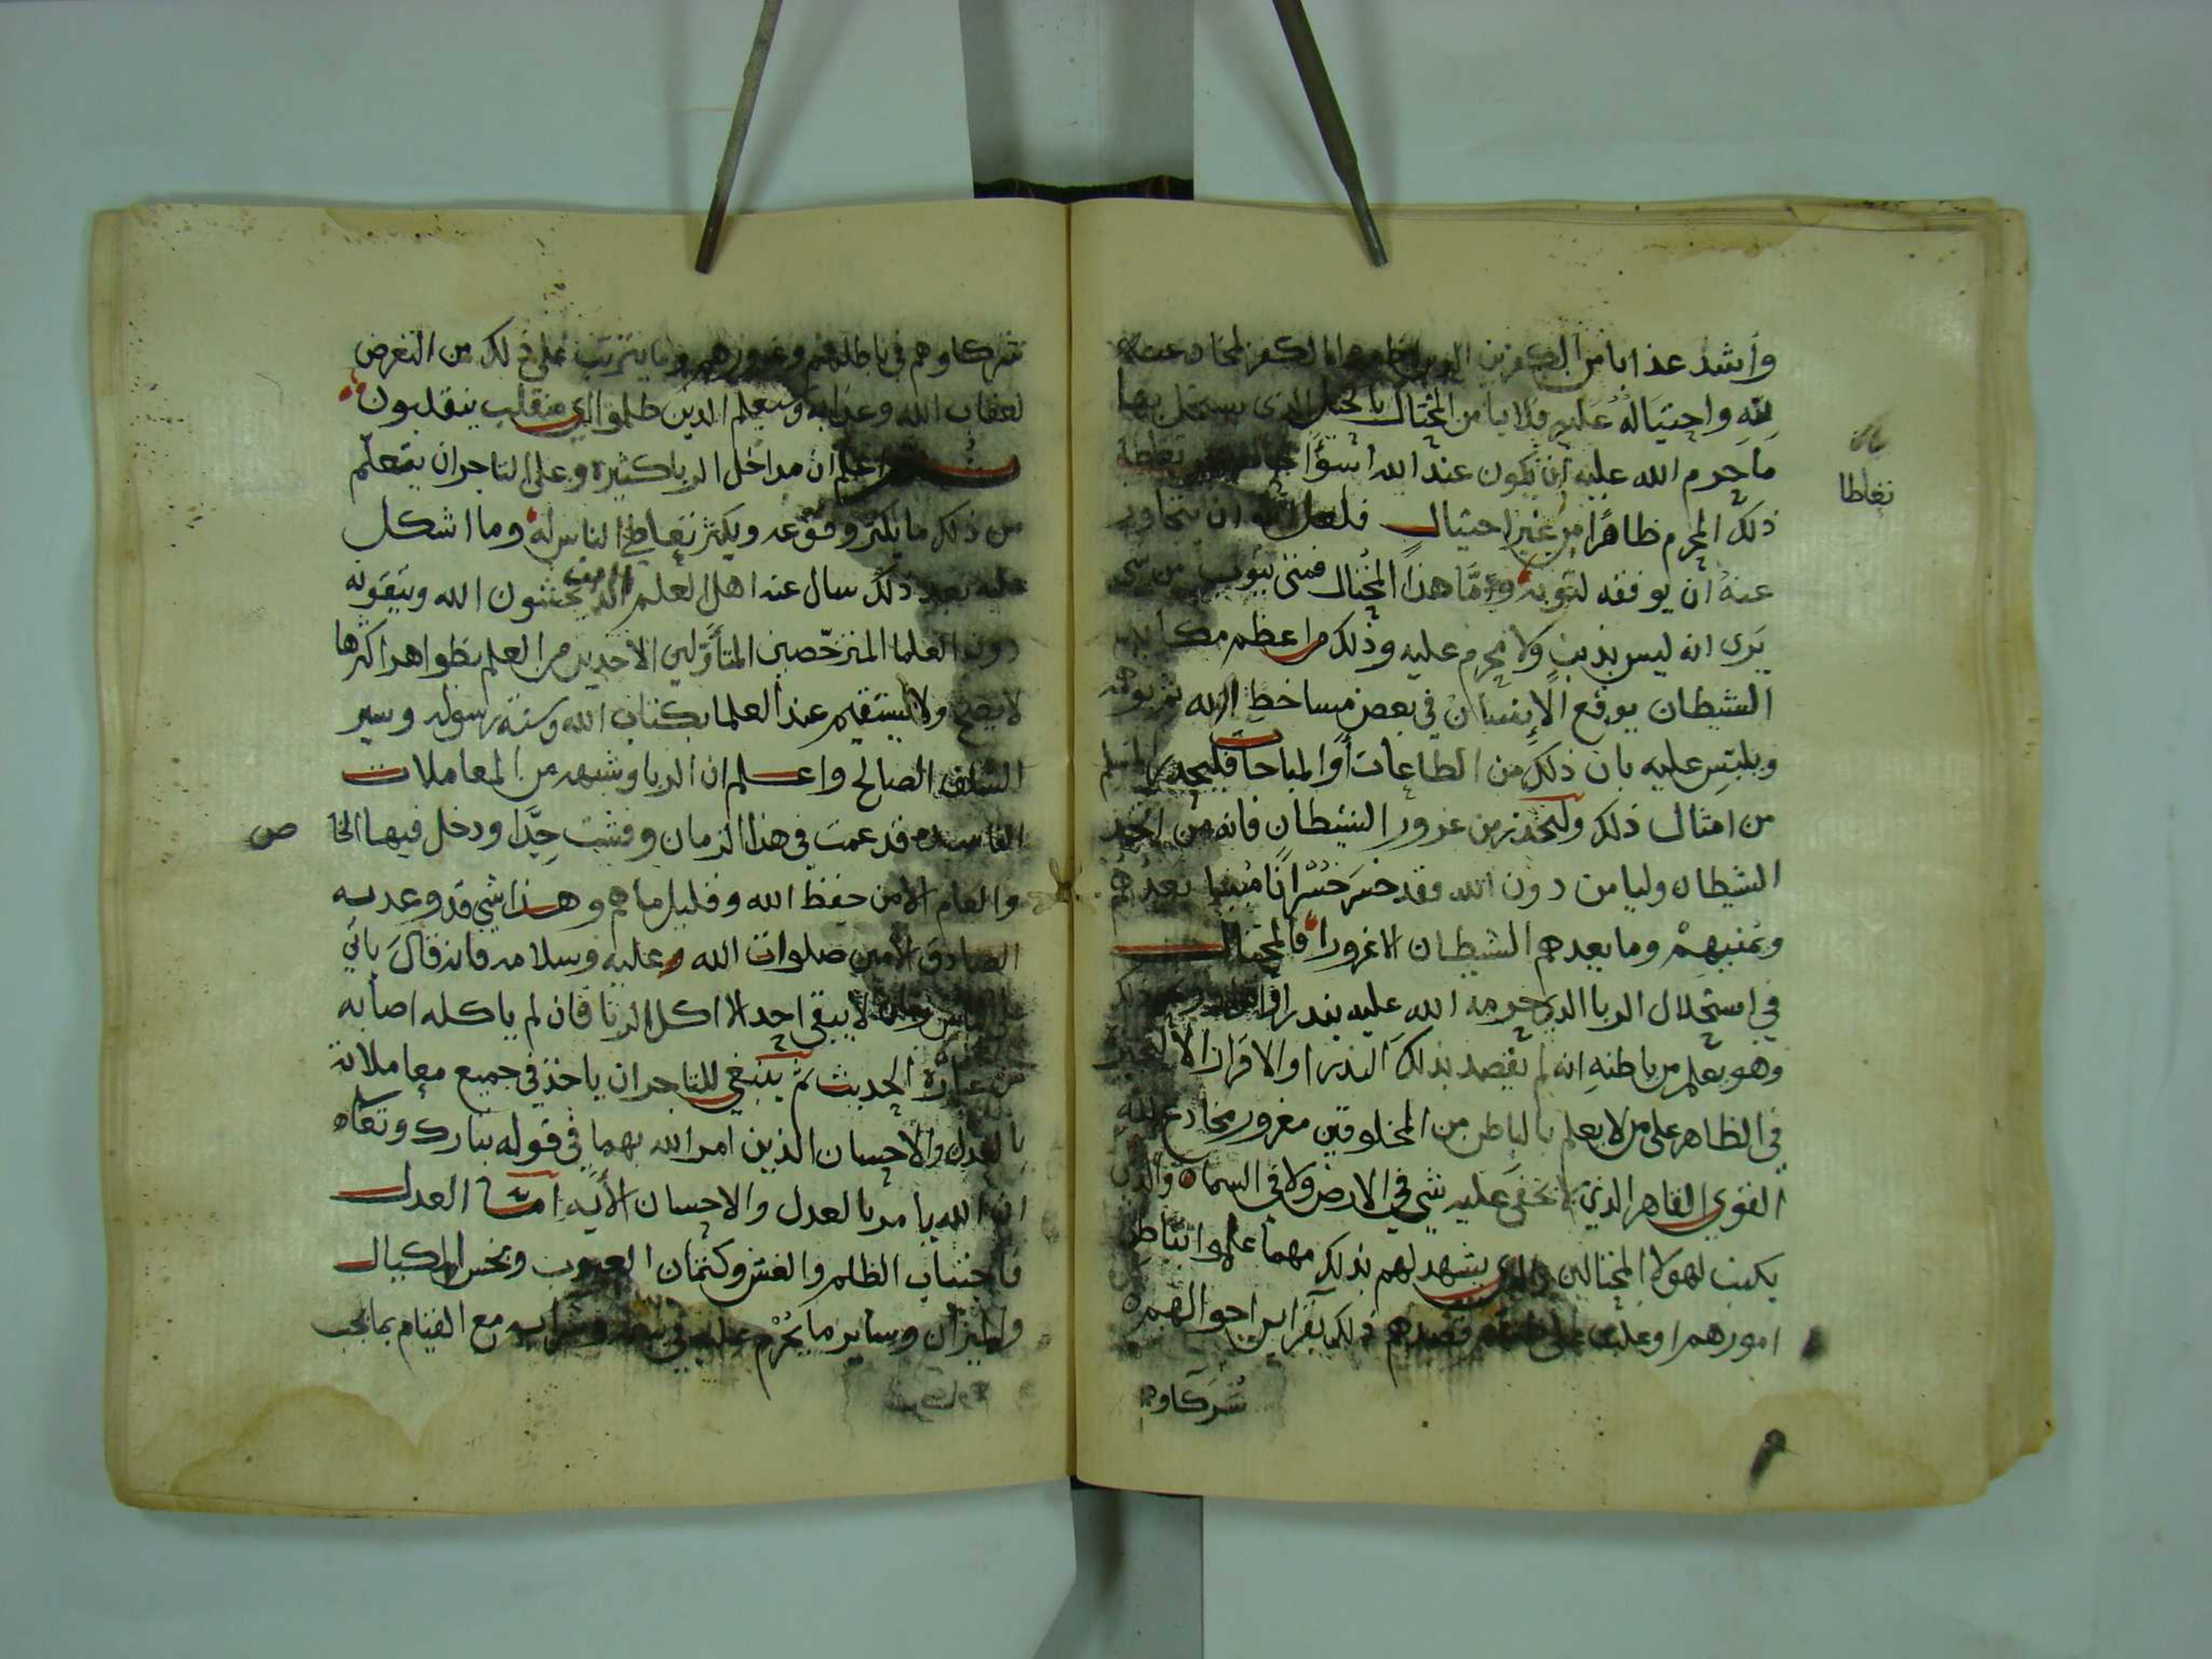 واشد عذابا من الكافرين الذين اظهروا الكفر لمخادعته
لله واحتياله عليه فلا يامن المحتال بالحيل الذي يستحل بها
ما حرم الله عليه ان يكون عند الله اسؤا حالا ممن تعاطا
تعاطا
ذلك المحرم ظاهرًا من غير احتيال فلعل الله ان يتجاوز
عنه ان يوفقه لتوبة وامّا هذا المحتال فمتى يتوب من شي
يَرى انه ليس بذنب ولا محرم عليه وذلك من اعظم مكايد
الشيطان يوقع الإنسان في بعض مساخط الله ثم
ويلبس عليه بان ذلك من الطاعات أو المباحات فليحذر المسلم
من امثال ذلك وليحذر من غرور الشيطان فانه من اتخذ
الشيطان وليا من دون الله فقد خسر خسرانًا مبينا يعدهم
ويمنيهم وما يعدهم الشيطان الا غرورا فالمحتال
في استحلال الربا الذي حرمه الله عليه بنذر او
وهو يعلم من باطنه انه لم يقصد بذلك النذر او الاقرار الا
في الظاهر على من لا يعلم بالباطن من المخلوقين مغرور مخادع لله
القوي القاهر الذي لا يخفى عليه شي في الارض ولا في السماء والذي
يكتب لهولاء المحتالين والذي يشهد لهم بذلك مهما علموا بباطن
امورهم او غلب على ظنهم قصدهم ذلك بقراين احوالهم
شركاوهم
شركاوهم في باطلهم وغرورهم وما يترتب على ذلك من التعرض
لعقاب الله وعذابه وسيعلم الذين ظلموا اي منقلب ينقلبون
اعلم ان مداخل الربا كثيرة وعلى التاجر ان يتعلم
من ذلك ما يكثر وقوعه ويكثر تعاطي الناس له وما اشكل
عليه بعد ذلك سال عنه اهل العلم الذين يخشون الله ويتقونه
دون العلما المترخّصين المتأوّلين الاخذين من العلم بظواهر اكثرها
لا يصح ولا يستقيم عند العلما بكتاب الله وسنة رسوله وسير
السلف الصالح واعلم ان الربا وشبهه من المعاملات
الفاسده قد عمت في هذا الزمان وفشت جدًّا ودخل فيها الخا ص
والعام الا من حفظ الله وقليل ما هم وهذا شي قد وعد به
الصادق الأمين صلوات الله عليه وسلامه فانه قال ياتي
على الناس زمان لا يبقى احد الا اكل الربا فان لم ياكله اصابه
من غباره الحديث ثم ينبغي للتاجر ان ياخذ في جميع معاملاته
بالعدل والاحسان الذين امر الله بهما في قوله تبارك وتعاه
ان الله يامر بالعدل والاحسان الأيه امّا العدل
فاجتناب الظلم والغش وكتمان العيوب وبخس المكيال
والميزان وساير ما يَحْرُم عليه في بيعه وشرايه مع القيام بما يجب